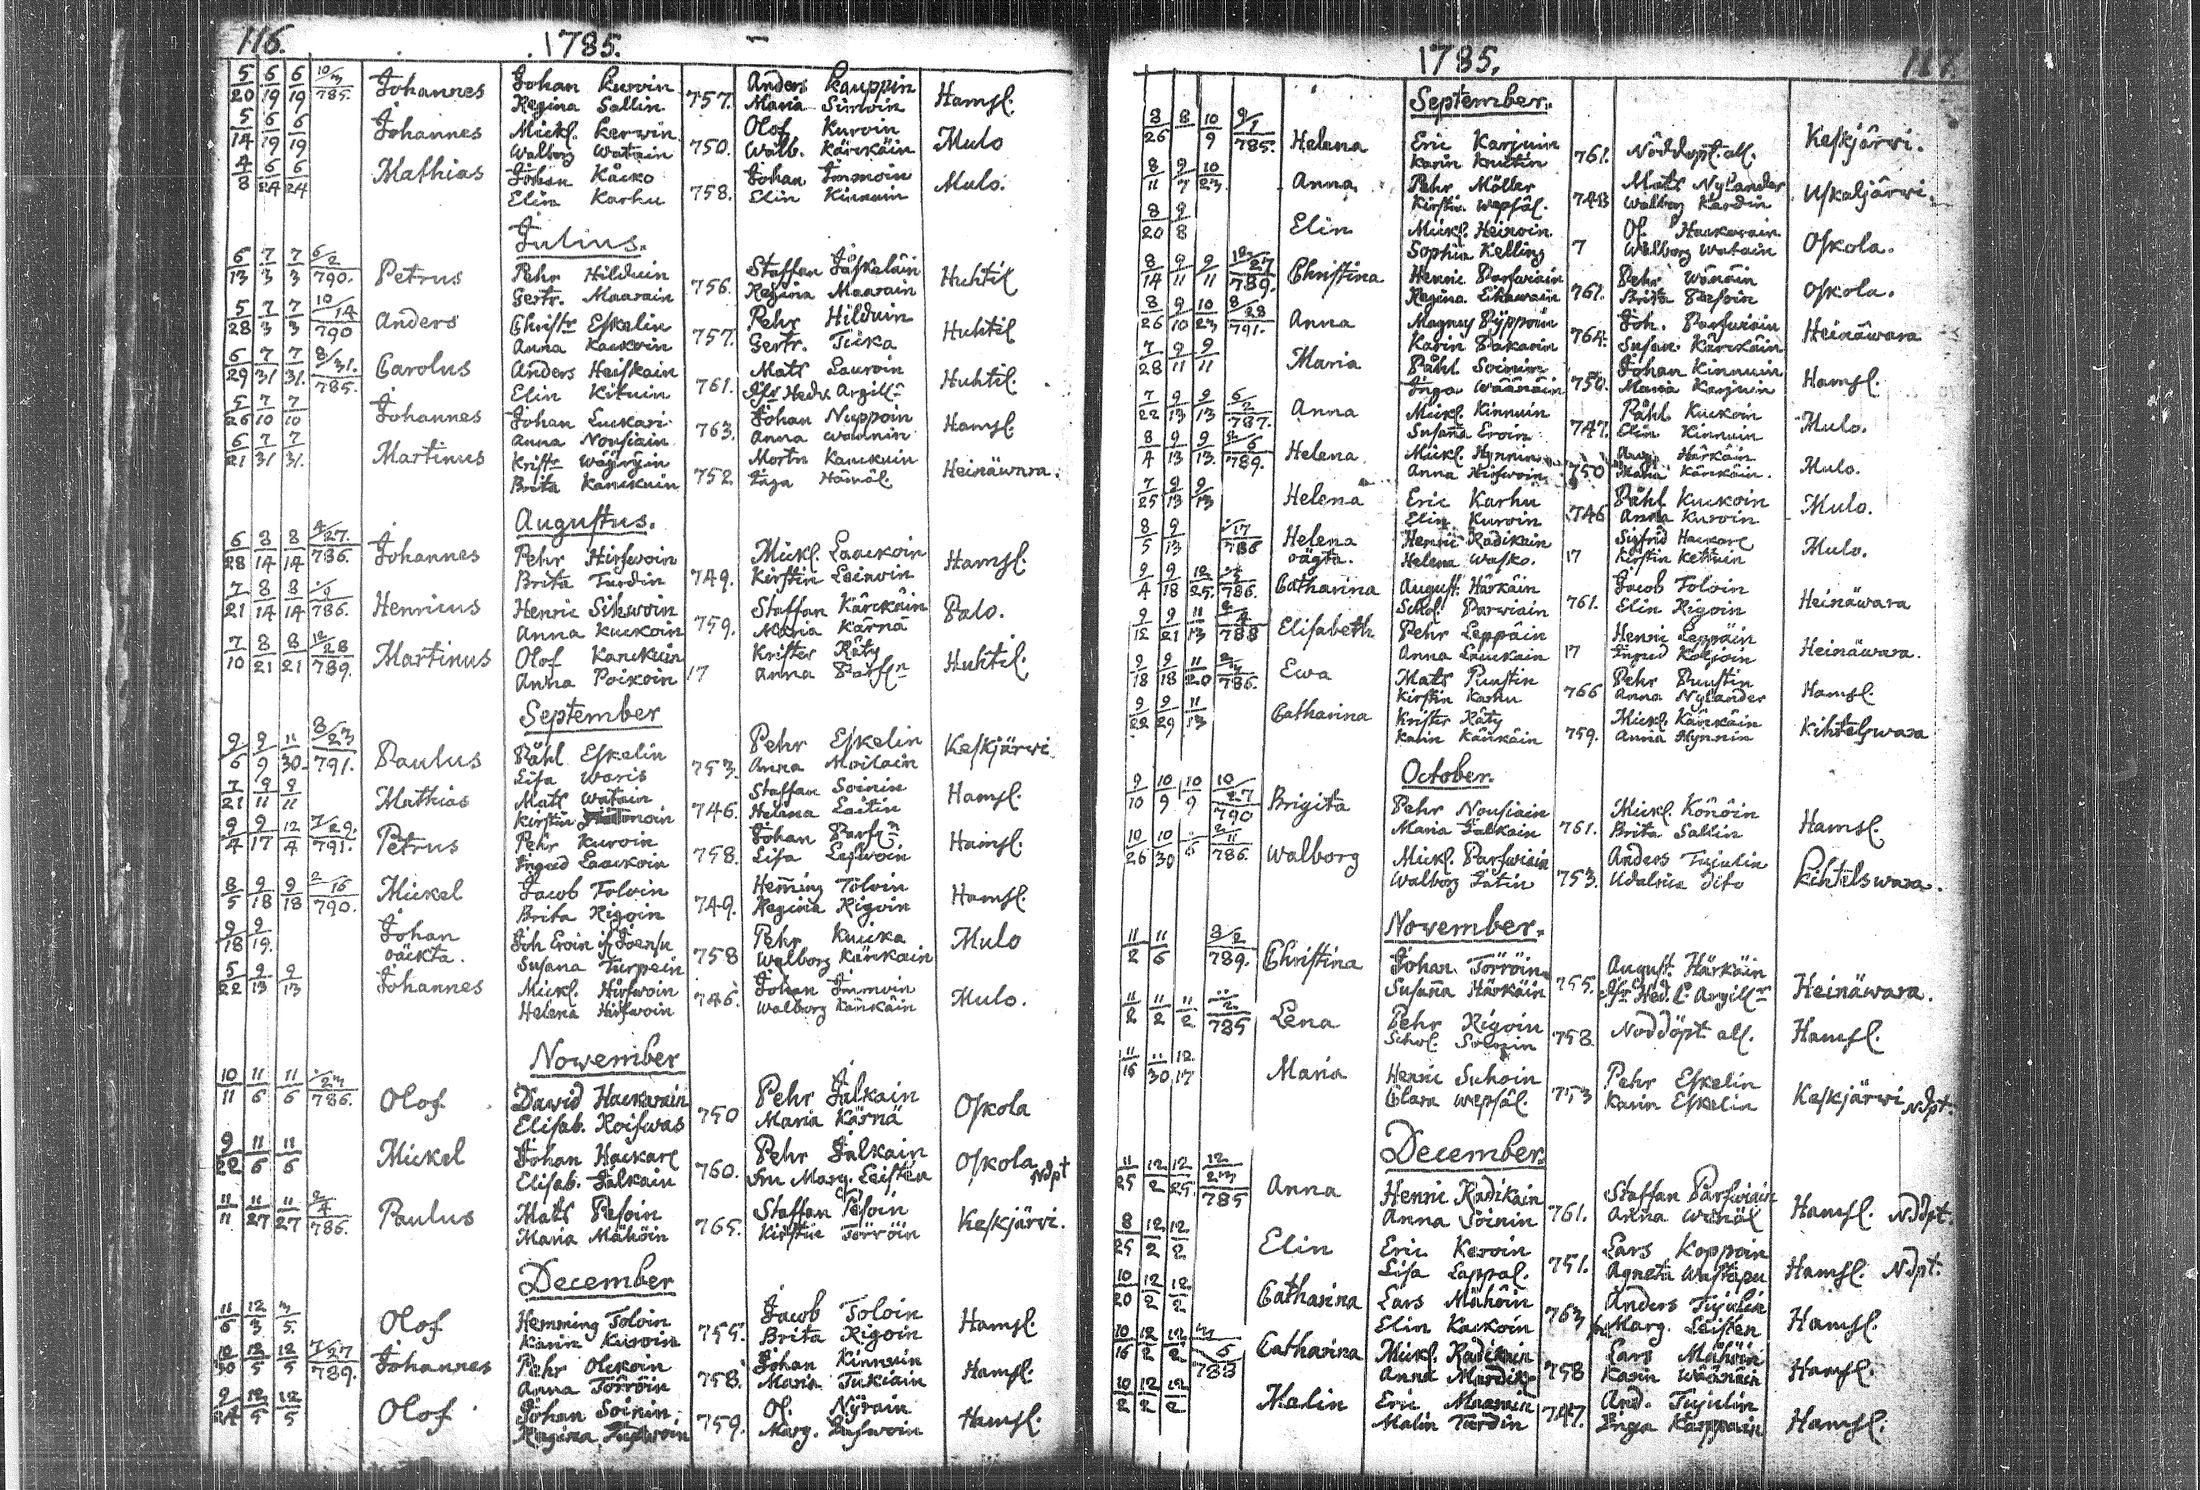 116. 1785.
5/20 6/19 6/19 10/3 785. Johannes Johan Kurvin Anders Kauppin Hamsl.
Regina Sallin 757. Maria Sirwoin
5/14 6/19 6/19 Johannes Mickl. Kerwin Olof Kurvin Mulo
Walborg Watain 750. Walb. Kärckäin
4/8 6/24 6/24 Mathias Johan Kacko Johan Immoin Mulo.
Elin Karhu 758. Elin Kinnuin
Julius.
6/13 7/3 7/3 6/2 790. Petrus Pehr Hilduin Staffan Jäskeläin Huhtil
Gertr. Maarain 756. Regina Maarain
5/28 7/3 7/3 10/14 790 Anders Christr Eskelin Pehr Hilduin Huhtil
Anna Kackoin 757. Gertr. Ticka
6/29 7/31 7/31. 8/31. 785. Carolus Anders Heiskain Mats Lauroin Huhtil.
Elin Kituin 761. Jfr Hedv. Argillr
5/26 7/10 7/10 Johannes Johan Luckari Johan Nuppoin Hamsl.
Anna Nousiain 763. Anna Watanin
6/21 7/31 7/31. Martinus Kristr Wäyryin Mortn Kanckuin Heinäwara.
Brita Kanckuin 752 Inga Hämäl.
Augustus.
6/28 8/14 8/14 4/27. 786. Johannes Pehr Hirfwoin Mickl. Laackoin Hamsl.
Brita Turdin 749. Kirstin Leinoin
7/21 8/14 8/14 786. Henricus Henric Sihwoin Staffan Kärckäin Palo.
Anna Kuckoin 759. Maria Kärnä
7/10 8/21 8/21 12/28 789. Martinus Olof Kanckuin Krister Räty Huhtil.
Anna Poikoin 17 Anna Parfn
September
9/6 9/9 11/30. 8/23 791. Paulus Påhl Eskelin Pehr Eskelin Keskjärwi
Lisa Waris 753. Anna Moilain
7/21 9/11 9/11 Mathias Mats Watain Staffan Soinin Hamsl.
Kirstin 746. Helena Laitin
9/4 9/17 12/4 7/29. 791. Petrus Pehr Kuroin Johan Parfn Hamsl.
Ingrid Laackoin 758. Lisa Lefwoin
8/5 9/18 9/18 2/16 790. Mickel Jacob Toloin Heming Toloin Hamsl.
Brita Rigoin 749. Regina Rigoin
9/18 9/19. Johan Joh Eroin if Joensu Pehr Kuicka Mulo
oäckta. Susana Turpein 758 Walborg Kärckain
5/22 9/13 9/13 Johannes Mickl. Hirfwoin Johan Immoin Mulo.
Helena Hirfwoin 746. Walborg Kärckäin
November
10/11 11/6 11/6 1/23 786. Olof Dawid Hackarain Pehr Jalkain Oskola
Elisab. Roifwas 750 Maria Kärnä
9/22 11/6 11/6 Mickel Johan Hackarl Pehr Jalkain Oskola Ndpt
Elisab. Jalkain 760. fru Marg. Leisten
11/11 11/27 11/27 2/4 786. Paulus Mats Pesoin Staffan Pesoin Keskjärwi.
Maria Mähöin 765. Kirstin Törröin
December
11/6 12/3 3/5. Olof Hemming Toloin Jacob Toloin Hamsl.
Karin Kuroin 755. Brita Rigoin
10/30 12/5 12/5 7/27 789. Johannes Pehr Olckoin Johan Kinnuin Hamsl.
Anna Törröin 758. Maria Tukiain
9/24 12/5 12/5 Olof Johan Soinin Ol. Nyrain Hamsl.
Regina 759. Marg.
1785. 117.
September.
8/26 8 10/9 9/1 785. Helena Eric Karjuin Nöddöpt. all. Keskjärwi.
Karin Knutin 761.
8/11 9/7 10/23. Anna Pehr Möller Mats Nylander Uskaljärwi.
Kirstin Wepsäl. 743 Walborg Kardin
8/20 9/8 Elin Mickl. Heinoin Ol. Hackarain Oskola.
Sophia Kelling 7 Walborg Watain
8/14 9/11 9/11 12/27 789. Christina Henric Parfwiain Pehr Wänäin Oskola.
Regina Eihawain 761. Brita Pesoin
8/26 9/10 10/23 8/28 791. Anna Magnus Pÿppoin Joh. Parfwiain Heinäwara
Karin Pakarin 764. Susan. Kärckäin
7/28 9/11 9/11 Maria Påhl Soinin Johan Kinnuin Hamsl.
Inga Wäänäin 750. Maria Karjuin
7/22 9/13 9/13 6/2 787. Anna Mickl. Kinnuin Påhl Kuckoin Mulo.
Susaña Eroin 747. Elin Kinnuin
8/4 9/13 9/13. 2/6 789. Helena Mickl. Hynnin Aug. Härkäin Mulo.
Anna Hirfwoin 750 Maria Kärckäin.
7/25 9/13 9/13 Helena Eric Karhu Påhl Kuckoin Mulo.
Elin Kuroin 746 Anna Kuroin
8/5 9/13 1/17 786 Helena Henric Radikain Sigfrid Hackarl Mulo.
oägta. Helena Wasko. 17 Kirstin Ketuin
9/4 9/18 12/25. 786. Catharina August. Härkäin Jacob Toloin Heinäwara
Schol. Parwiain 761. Elin Rigoin
9/12 9/21 11/13 2/4 788 Elisabeth Pehr Leppäin Henric Leppäin Heinäwara.
Anna Lauckain 17 Ingrid Karjoin
9/18 9/18 11/20 786. Ewa Mats Puustin Pehr Puustin Hamsl.
Kirstin Karhu 766 Anna Nylander
9/22 9/29 11/13 Catharina Krister Räty Mickl. Kärckäin Kihtelswara
Karin Kärckäin 759. Anna Hynnin
October.
9/10 10/9 10/9 10/27 790 Brigita Pehr Nousiain Mickl. Könöin Hamsl.
Maria Jalkain 761. Brita Sallin
10/26 10/30 2/11 786. Walborg Mickl. Parfwiain Anders Tujulin Kihtelswara.
Walborg Jätin 753. Udalrica dito
November.
11/2 11/6 8/2 789. Christina Johan Törröin August. Härkäin Heinäwara.
Susaña Härkäin 755. Jfr Hed. L. Argillr
11/2 11/2 11/2 785 Lena Pehr Rigoin Noddöpt all. Hamsl.
Schol. Soinin 758.
11/16 11/30 12/17 Maria Henric Suhoin Pehr Eskelin Keskjärwi Ndpt.
Clara Wepsäl. 753 Karin Eskelin
December.
11/25 12/2 12/25. 12/23 785 Anna Henric Radikain Staffan Parfwiain Hamsl. Nddpt.
Anna Soinin 761. Anna Wänäl
8/25 12/2 12/2 Elin Eric Keroin Lars Koppoin Hamsl. Ndpt.
Lisa Lappal. 751. Agneta Wastapu
10/20 12/2 12/2 Catharina Lars Mähöin Anders Tujulin Hamsl.
Elin Kackoin 763 fru Marg. Leisten
10/16 12/2 12/2 3/5 788 Catharina Mickl. Radikain Lars Mähöin Hamsl.
Anna 758 Karin Wäänäin
10/2 12/2 12/2 Malin Eric Maarain And. Tujulin Hamsl.
Malin Turdin 747. Inga Karppain